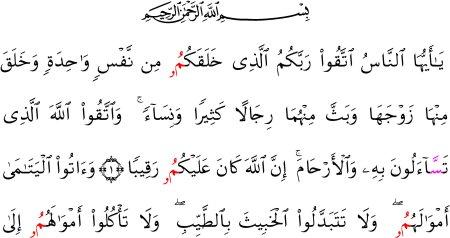 بِسْمِ ٱللَّهِ ٱلرَّحْمَٰنِ ٱلرَّحِيمِ
يَٰٓأَيُّهَا ٱلنَّاسُ ٱتَّقُوا۟ رَبَّكُمُ ٱلَّذِى خَلَقَكُمُۥ مِن نَّفْسٍ وَٰحِدَةٍ وَخَلَقَ
مِنْهَا زَوْجَهَا وَبَثَّ مِنْهُمَا رِجَالًا كَثِيرًا وَنِسَآءً ۚ وَٱتَّقُوا۟ ٱللَّهَ ٱلَّذِى
تَسَّآءَلُونَ بِهِۦ وَٱلْأَرْحَامَ ۚ إِنَّ ٱللَّهَ كَانَ عَلَيْكُمُۥ رَقِيبًا ﴿١﴾ وَءَاتُوا۟ ٱلْيَتَٰمَىٰٓ
أَمْوَٰلَهُمُۥ ۖ وَلَا تَتَبَدَّلُوا۟ ٱلْخَبِيثَ بِٱلطَّيِّبِ ۖ وَلَا تَأْكُلُوٓا۟ أَمْوَٰلَهُمُۥٓ إِلَىٰٓ